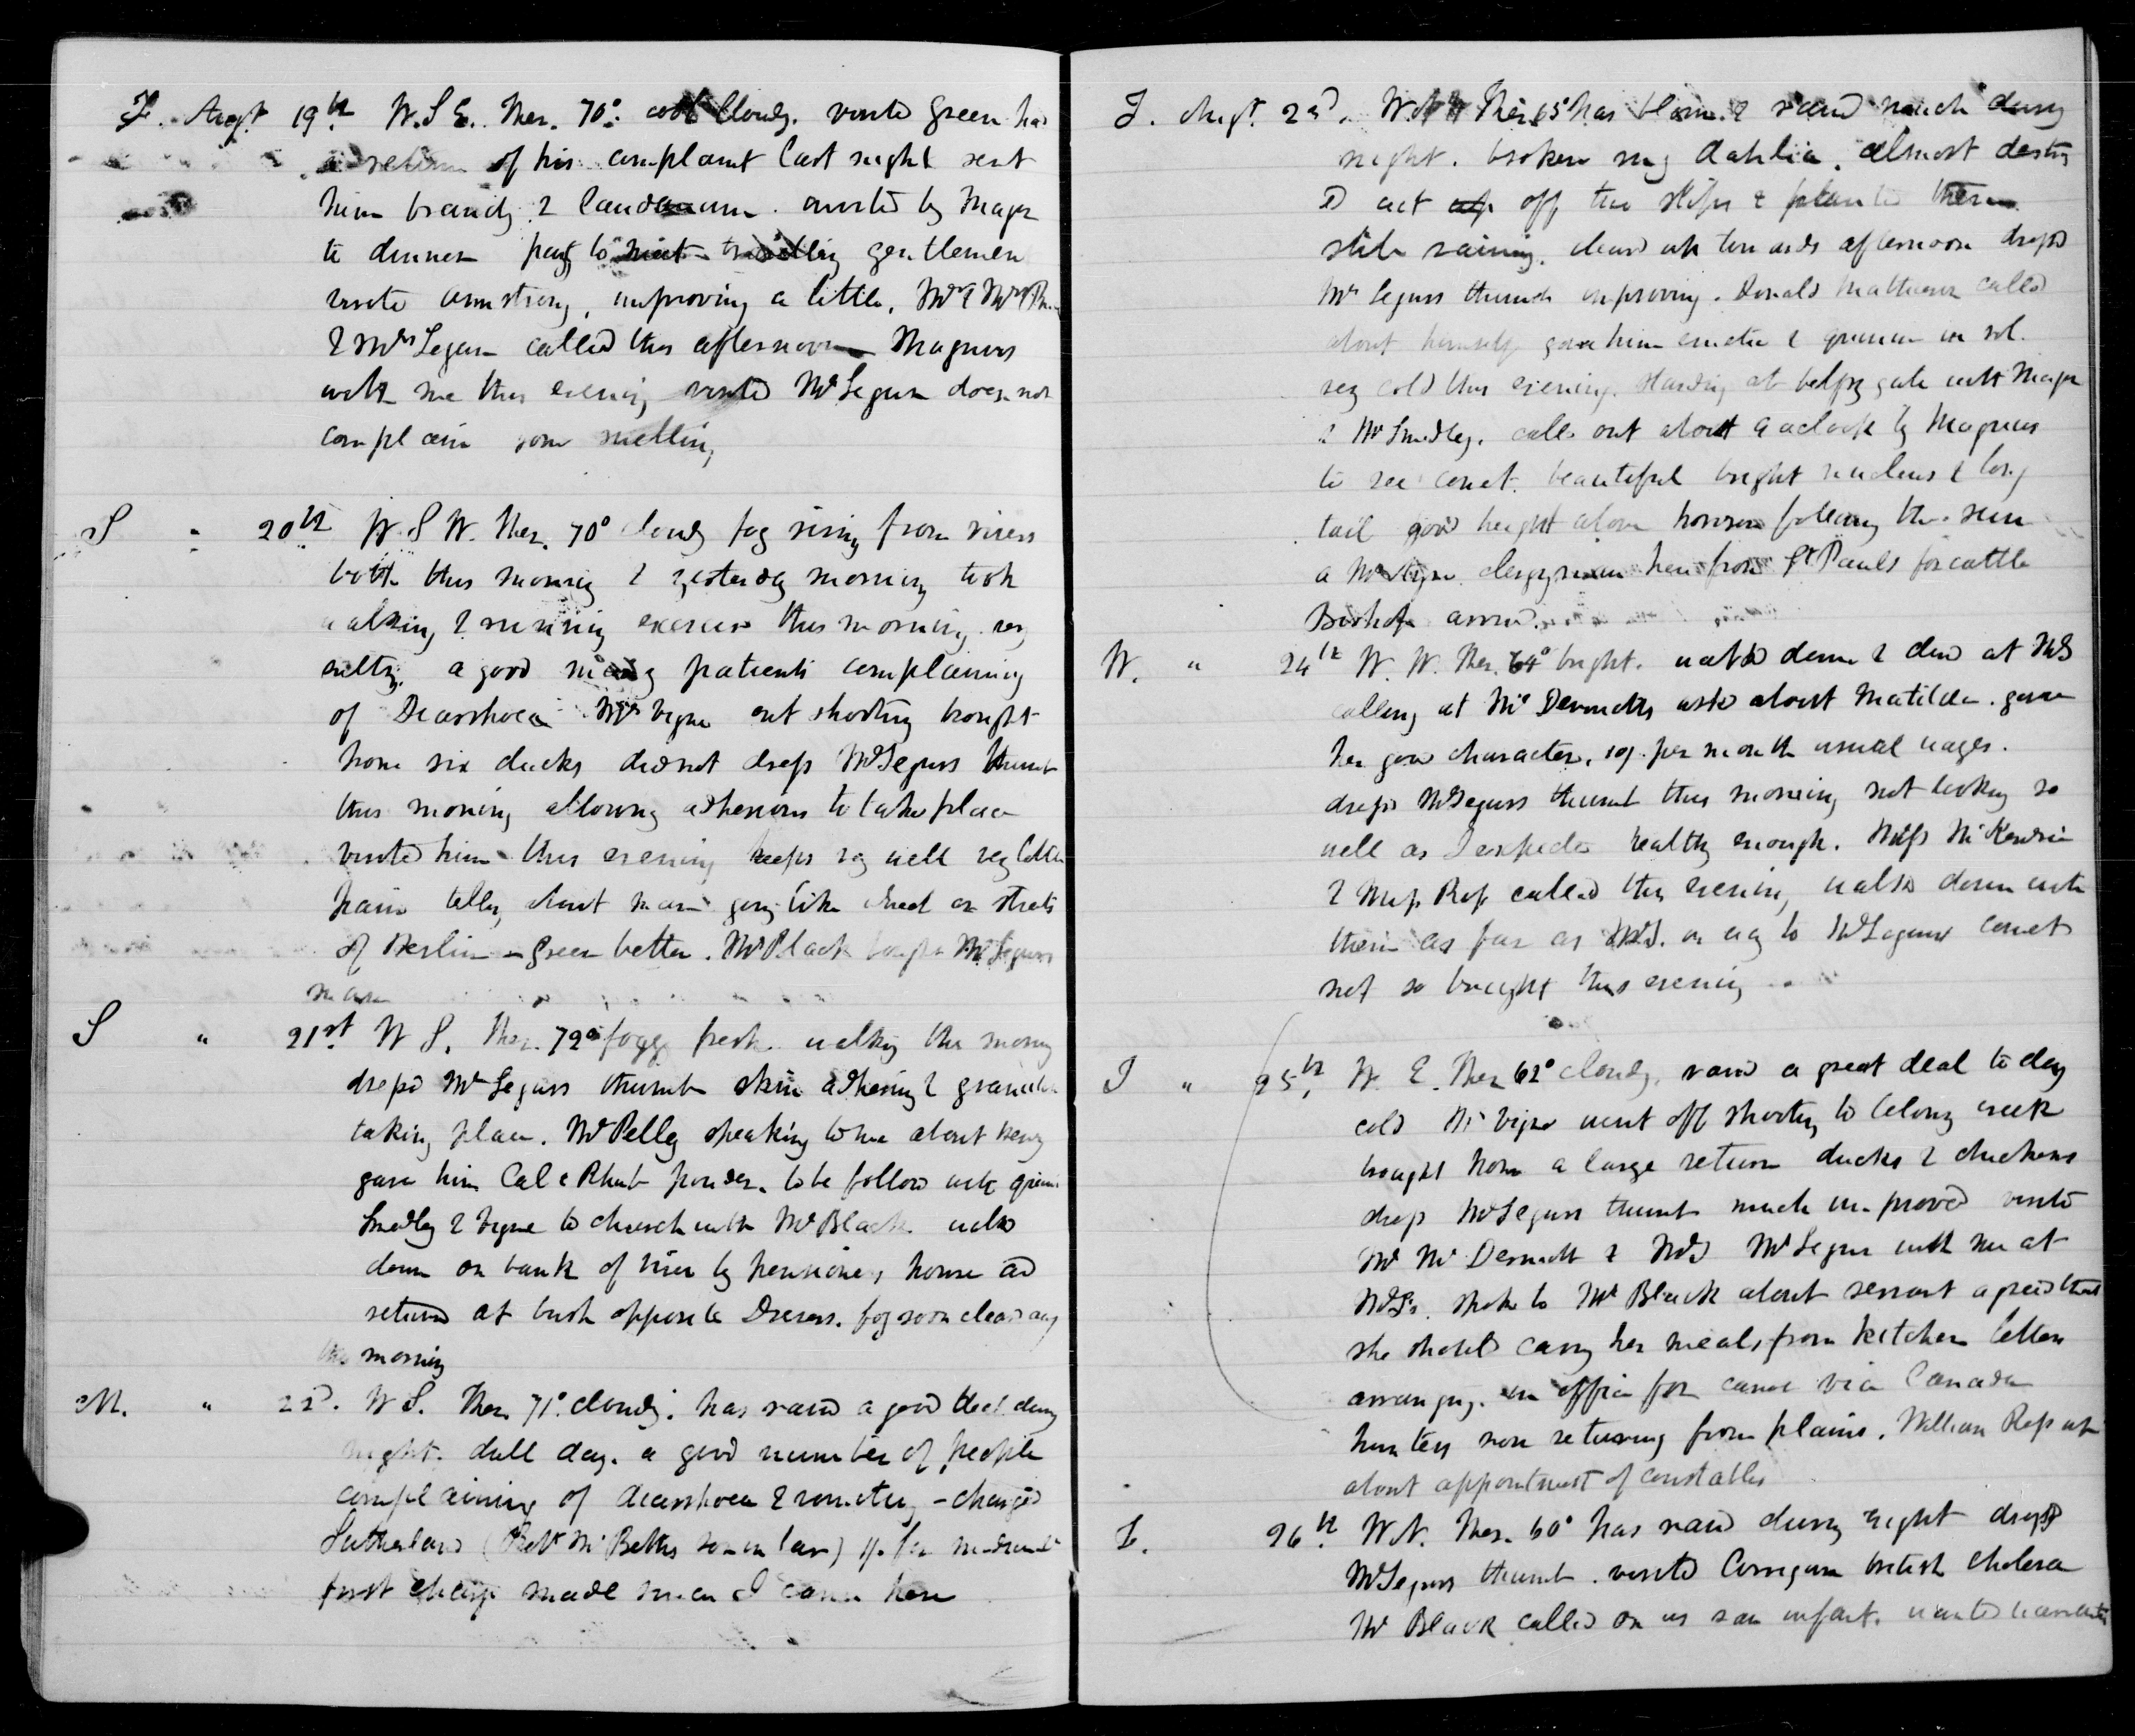 F. Augt 19th W.S.E. Ther. 70° cool cloudy. visitd Green had
a return of his complaint last night sent
him brandy & laudanum. invited by Major
to dinner party to meet travelling gentlemen
visitd Armstrong, improving a little. Mr & Mrs
& Mrs Segur called this afternoon Magnus
with me this evening visitd Mr Segur does not
complain some swelling
S " 20th W.S.W. Ther. 70° cloudy fog rising from rivers
both this morning & yesterday morning took
walking & running exercise this morning very
sultry. a good many patients complaining
of Diarrhoea Mr Vigne out shooting brought
home six ducks did not dress Mr Segurs thumb
this morning allowing adhesions to take place
visited him this evening keeps very well very little
pain telling about man going like on streets
of Berlin - Green better. Mr Black bought Mr Segurs
mare
S " 21st W S. Ther. 72° foggy fresh walking this morning
dresd Mr Segurs thumb skin adhering & granulation
taking place. Mr Pelly speaking to me about Henry
gave him Cal & Rhub powder. to be follow with
Smedley & Vigne to church with Mr Black. walkd
down on bank of river by pensioners house and
returnd at bush opposite Drevers. fog soon cleard away
this morning
M. " 22d. W S. Ther. 71° cloudy. has raind a good deal during
night. dull day. a good number of people
complaining of diarrhoea & vomiting - charged
Sutherland (Robt McBeths son in law) 1/. for medicine
first charge made since I came here
T. Augt. 23d. W. Ther. 65° has blown & raind much during
night. broken my Dahlia, almost destroy
d cut up off two slips & planted them
still raining. cleard up towards afternoon dressd
Mr Segurs thumb improving. Donald Matheson called
about himself gave him emetic & quinine in sol.
very cold this evening. standing at belfry gate with Major
& Mr Smedley. calld out about 9 oclock by Magnus
to see comet. beautiful bright nucleus & long
tail good height above horizon following the sun
a Mr clergyman here from St Pauls for cattle
Bishop arrivd.
W. " 24th W. W. Ther. 64° bright. walkd down & dind at McDs
calling at McDermotts askd about Matilda. gave
her good character, 10/. per month usual wages.
dressd Mr Segurs thumb this morning not looking so
well as I expected healthy enough. Miss McKenzie
& Miss Ross called this evening, walkd down with
them as far as McDs. on way to Mr Segurs comet
not so bright this evening
T " 25th W. E. Ther 62° cloudy, raind a great deal to day
cold Mr Vigne went off shooting to Colony creek
brought home a large return ducks & chickens
dresd Mr Segurs thumb much improved visitd
Mr McDermott & McD Mr Segur with me at
McDs. spoke to Mr Black about servant agreed that
she should carry her meals from kitchen letters
arranging. in office for canoe via Canada
hunters now returning from plains. William Ross up
about appointment of constables
F. 26th W.N. Ther. 60° has raind during night dressd
Mr Segurs thumb. visitd Corrigan british cholera
Mr Black called on us saw infant. wanted